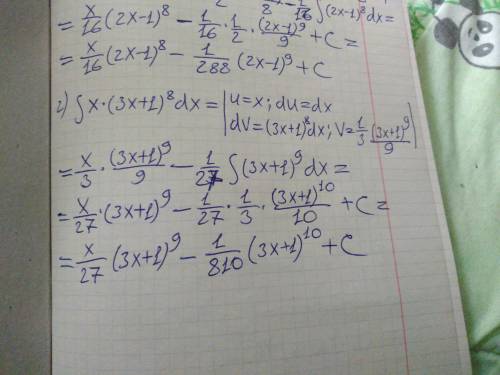 = x/16 (2x-1)⁸ - 1/16 · 1/2 · (2x-1)⁹/9 + C =
= x/16 (2x-1)⁸ - 1/288 (2x-1)⁹ + C
г) ∫ x·(3x+1)⁸ dx = | u = x; du = dx
dV = (3x+1)⁸dx; V = 1/3 (3x+1)⁹/9 |
= x/3 · (3x+1)⁹/9 - 1/27 ∫ (3x+1)⁹ dx =
= x/27 · (3x+1)⁹ - 1/27 · 1/3 · (3x+1)¹⁰/10 + C =
= x/27 (3x+1)⁹ - 1/810 (3x+1)¹⁰ + C